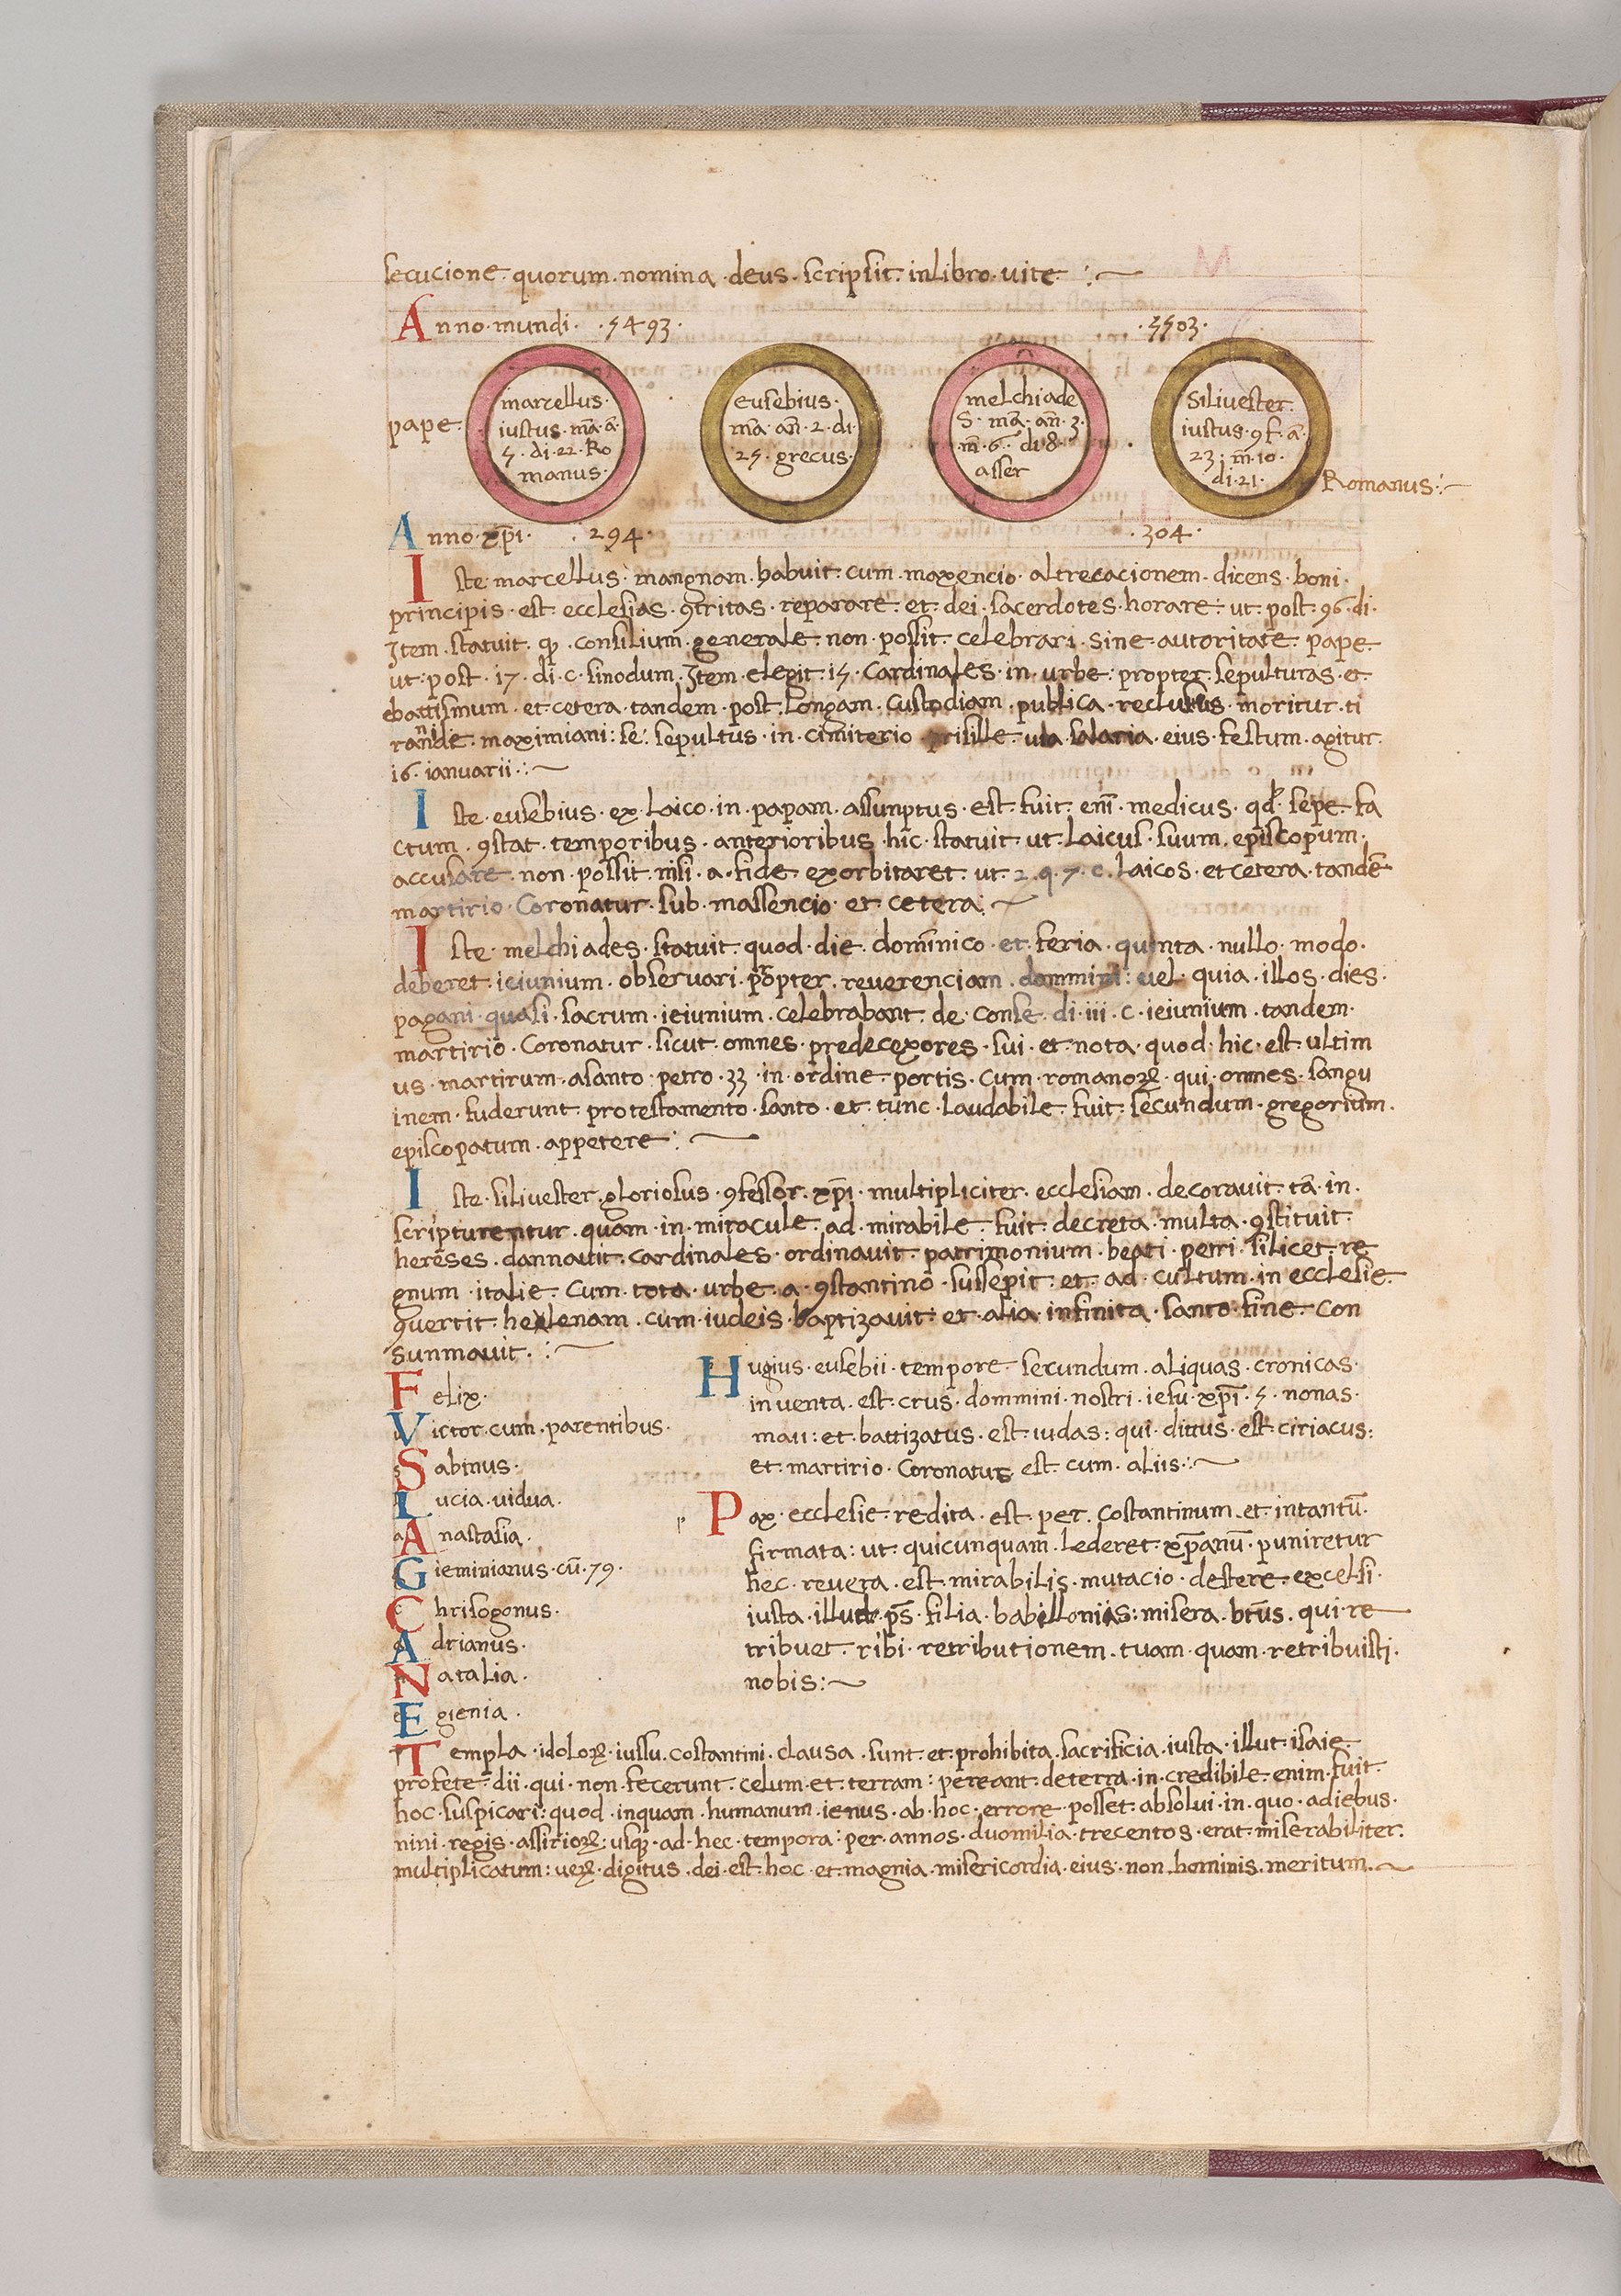 secucione quorum nomina deus scripsit in libro vite :~
Anno mundi · 5493 · · 5503 ·
pape
marcellus
iustus mā ā
5 di 22 Ro
manus
eusebius
mā añ 2 di
25 grecus
melchiade
S mā añ 3
m̄ 6 di 8
asser
Silivester
iustus 9f ā
23 m̄ 10
di 21
Romanus :~
Anno xp̄i · 294 · · 304 ·
Iste marcellus mangnam habuit cum maxencio altrecacionem dicens boni
principis est ecclesias 9tritas reparare et dei sacerdotes horare ut post 96 di
Item statuit qd consilium generale non possit celebrari sine autoritate pape
ut post 17 di c sinodum Item elegit 15 cardinales in urbe propter sepulturas et
battismum et cetera tandem post longam custodiam publica reclusus moritur ti
rannide maximiani se sepultus in cimiterio prisille via salaria eius festum agitur
16 ianuarii :~
Iste eusebius ex laico in papam assunptus est fuit enī medicus qd sepe fa
ctum 9stat temporibus anterioribus hic statuit ut laicus suum episcopum
accusare non possit nisi a fide exorbitaret ut 2 q 7 c laicos et cetera tandē
martirio coronatur sub massencio et cetera ~
Iste melchiades statuit quod die dominico et feria quinta nullo modo
deberet ieiunium observari propter reverenciam dommini vel quia illos dies
pagani quasi sacrum ieiunium celebrabant de conse di iii c ieiunium tandem
martirio coronatur sicut omnes predecexores sui et nota quod hic est ultim
us martirum a santo petro 33 in ordine portis cum romanoꝝ qui omnes sangu
inem fuderunt pro testamento santo et tunc laudabile fuit secundum gregorium
episcopatum appetere :~
Iste silivester gloriosus 9fessor xp̄i multipliciter ecclesiam decoravit tā in
scripturentur quam in miracule ad mirabile fuit decreta multa 9stituit
hereses dannavit cardinales ordinavit patrimonium beati petri silicet re
gnum italie cum tota urbe a 9stantino sussepit et ad cultum in ecclesie
9vertit helenam cum iudeis baptizavit et alia infinita santo fine con
sunmavit :~
Felix
Victor cum parentibus
Sabinus
Lucia vidua
Anastasia
Gieminianus cū 79
Chrisogonus
Adrianus
Natalia
Egienia
Hugius eusebii tempore secundum aliquas cronicas
inventa est crus dommini nostri iesu xp̄i 5 nonas
maii et battizatus est iudas qui dittus est ciriacus
et martirio coronatus est cum aliis :~
Pax ecclesie redita est per costantinum et intantū
firmata ut quicunquam lederet xp̄anū puniretur
hec revera est mirabilis mutacio destere excelsi
iusta illud pš filia babillonias misera btūs qui re
tribuet tibi retributionem tuam quam retribuisti
nobis :~
Templa idoloꝝ iussu costantini clausa sunt et prohibita sacrificia iusta illut isaie
profete dii qui non fecerunt celum et terram pereant de terra in credibile enim fuit
hoc suspicari quod inquam humanum ienus ab hoc errore posset absolui in quo a diebus
nini regis assirioꝝ usq ad hec tempora per annos duomilia trecentos erat miserabiliter
multiplicatum veꝝ digitus dei est hoc et magnia misericordia eius non hominis meritum ~